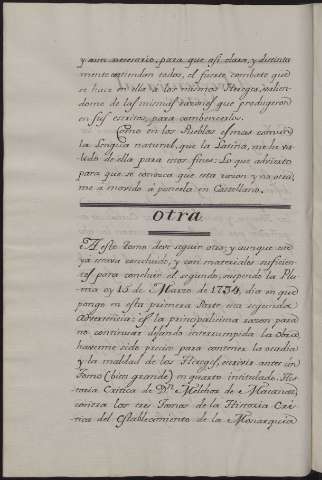 y aun necesario, para que asi clara, y distinta
mente entiendan todos, el fuerte combate que
se hace en ella à los mismos Hereges, valien-
dome de las mismas razones que produgeron
en sus escritos, para combencerlos.
Como en los Pueblos es mas comun
la Lengua natural, que la Latina, me he va-
lido de ella para estos fines: Lo que advierto
para que se conozca que esta razon y no otra,
me a movido à ponerla en Castellano.
otra
A este tomo deve seguir otro; y aunque
ya estava concluido, y con materiales suficien-
tes para concluir el segundo, suspendo la Plu-
ma oy 15 de Marzo de 1734, dia en que
pongo en esta primera Parte esta segunda
Advertencia; es la principalisima razon para
no continuar dejando interrumpida la obra
haverme sido preciso para contener la osadia
y la maldad de los Hereges, escrivir antes un
Tomo (bien grande) en quarto intitulado, His-
toria Critica de Dn. Melchor de Macanaz,
contra los tres Tomos de la Historia Cri-
tica del Establecimiento de la Monarquia